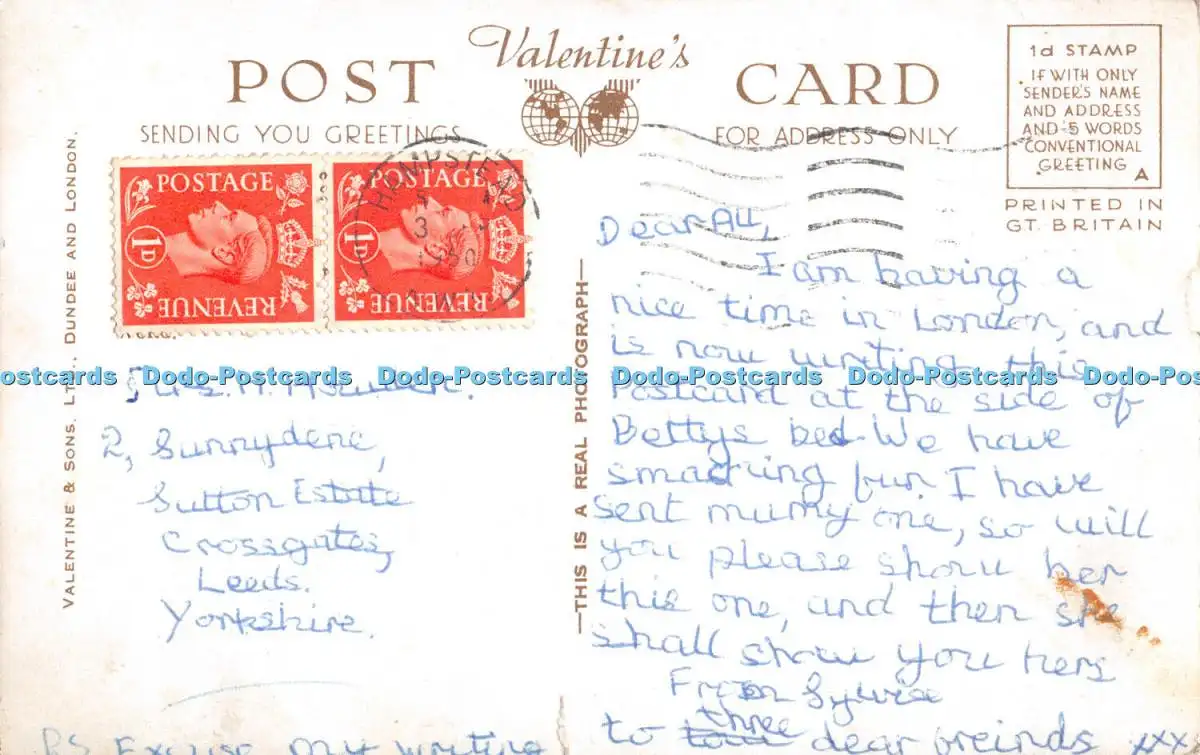 Valentine's
POST CARD
SENDING YOU GREETINGS
FOR ADDRESS ONLY
1d STAMP
IF WITH ONLY
SENDER'S NAME
AND ADDRESS
AND 5 WORDS
CONVENTIONAL
GREETING
A
PRINTED IN
GT. BRITAIN
VALENTINE & SONS, LTD., DUNDEE AND LONDON.
POSTAGE
1D
REVENUE
POSTAGE
1D
REVENUE
HAMPSTEAD
1950
—THIS IS A REAL PHOTOGRAPH—
2, Sunnydene,
Sutton Estate
Crossgates,
Leeds.
Yorkshire.
Dear All,
I am having a
nice time in London, and
is now writing this
Postcard at the side of
Bettys bed. We have
smacking fun. I have
sent mumy one, so will
you please show her
this one, and then she
shall show you hers
From
three
to dear freinds xxx
PS Excuse my writing
Dodo-Postcards Dodo-Postcards Dodo-Postcards Dodo-Postcards Dodo-Postcards Dodo-Postcards